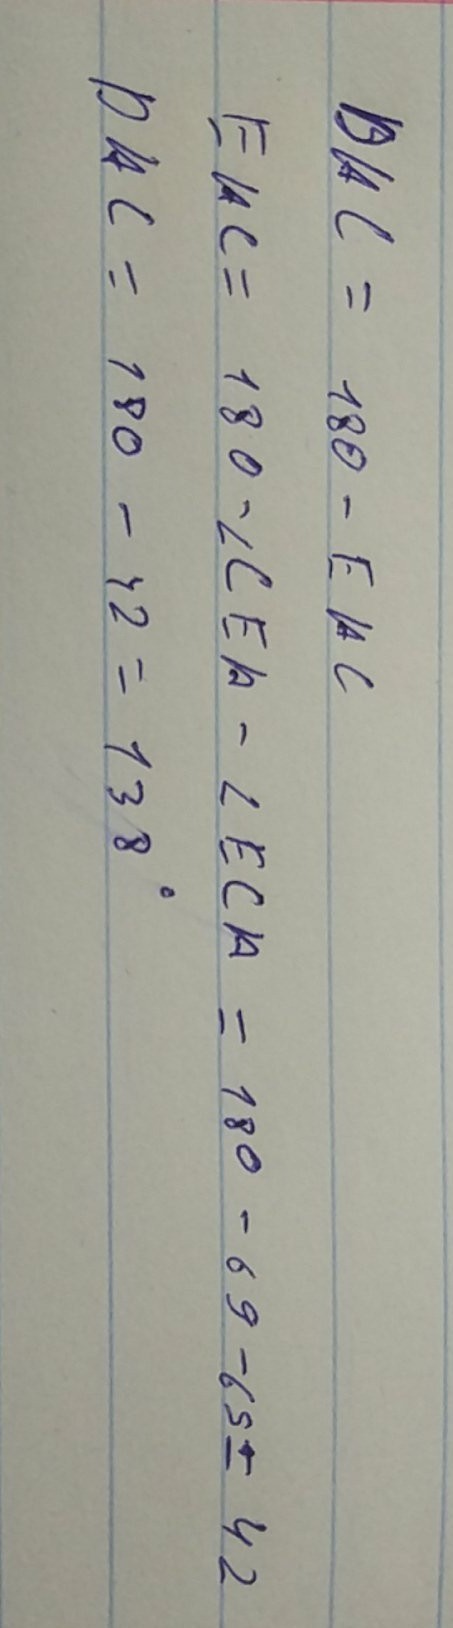 DAC = 180 - EAC
EAC = 180 - ∠CEA - ∠ECA = 180 - 69 - 69 = 42
DAC = 180 - 42 = 138°